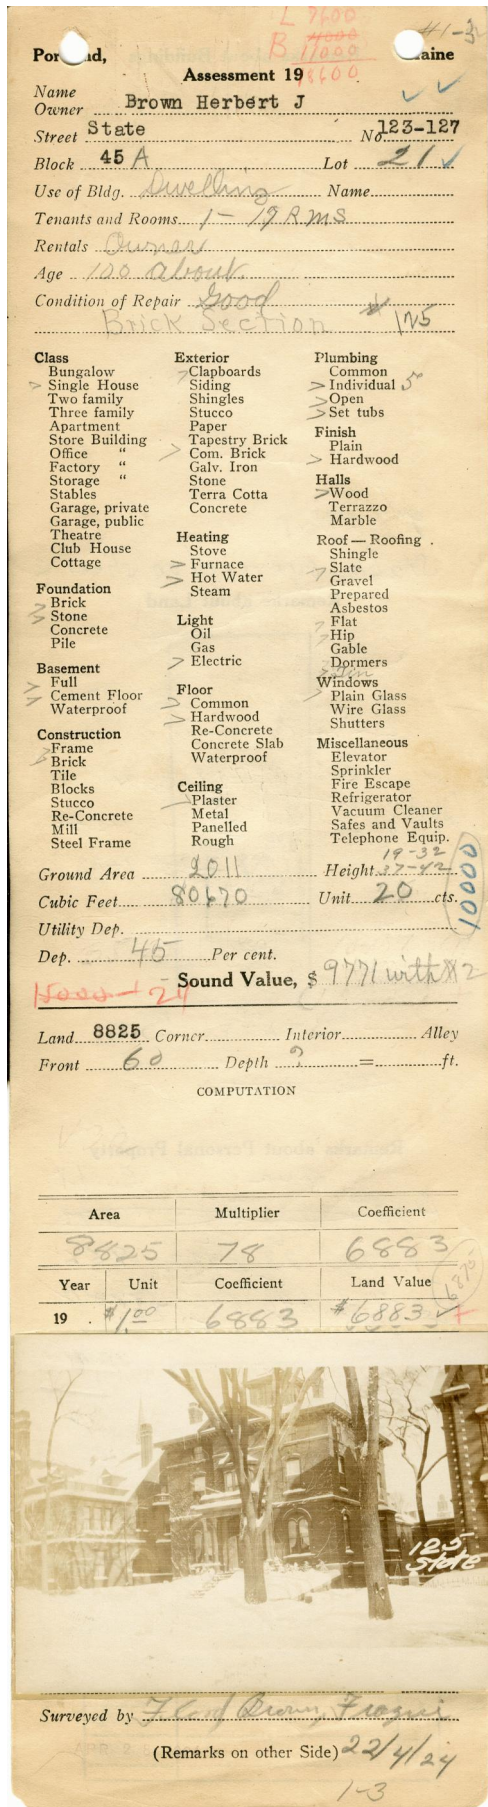 L 7600 #1-3
B 11000
18600
Portland, Maine
Assessment 19
Name
Owner Brown Herbert J
Street State No 123-127
Block 45 A Lot 21
Use of Bldg. Dwelling Name
Tenants and Rooms 1 - 19 Rms
Rentals Owner
Age 100 about
Condition of Repair Good
Brick Section 125
Class
Bungalow
Single House
Two family
Three family
Apartment
Store Building
Office "
Factory "
Storage "
Stables
Garage, private
Garage, public
Theatre
Club House
Cottage
Foundation
Brick
Stone
Concrete
Pile
Basement
Full
Cement Floor
Waterproof
Construction
Frame
Brick
Tile
Blocks
Stucco
Re-Concrete
Mill
Steel Frame
Exterior
Clapboards
Siding
Shingles
Stucco
Paper
Tapestry Brick
Com. Brick
Galv. Iron
Stone
Terra Cotta
Concrete
Heating
Stove
Furnace
Hot Water
Steam
Light
Oil
Gas
Electric
Floor
Common
Hardwood
Re-Concrete
Concrete Slab
Waterproof
Ceiling
Plaster
Metal
Panelled
Rough
Plumbing
Common
Individual 5
Open
Set tubs
Finish
Plain
Hardwood
Halls
Wood
Terrazzo
Marble
Roof — Roofing .
Shingle
Slate
Gravel
Prepared
Asbestos
Flat
Hip
Gable
Dormers
Windows
Plain Glass
Wire Glass
Shutters
Miscellaneous
Elevator
Sprinkler
Fire Escape
Refrigerator
Vacuum Cleaner
Safes and Vaults
Telephone Equip.
19-32
Ground Area 2011 Height 37-42
Cubic Feet 80670 Unit 20 cts.
10000
Utility Dep.
Dep. 45 Per cent.
Sound Value, $ 9771 with #2
Land 8825 Corner Interior Alley
Front 60 Depth ? = ft.
COMPUTATION
Area Multiplier Coefficient
8825 78 6883
Year Unit Coefficient Land Value
19 . $1.00 6883 $6883
6875
125
State
Surveyed by
(Remarks on other Side) 22/4/24
1-3